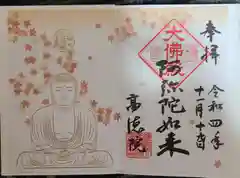 奉拝
令和四年
十一月十二日
大佛殿
阿弥陀如来
高徳院